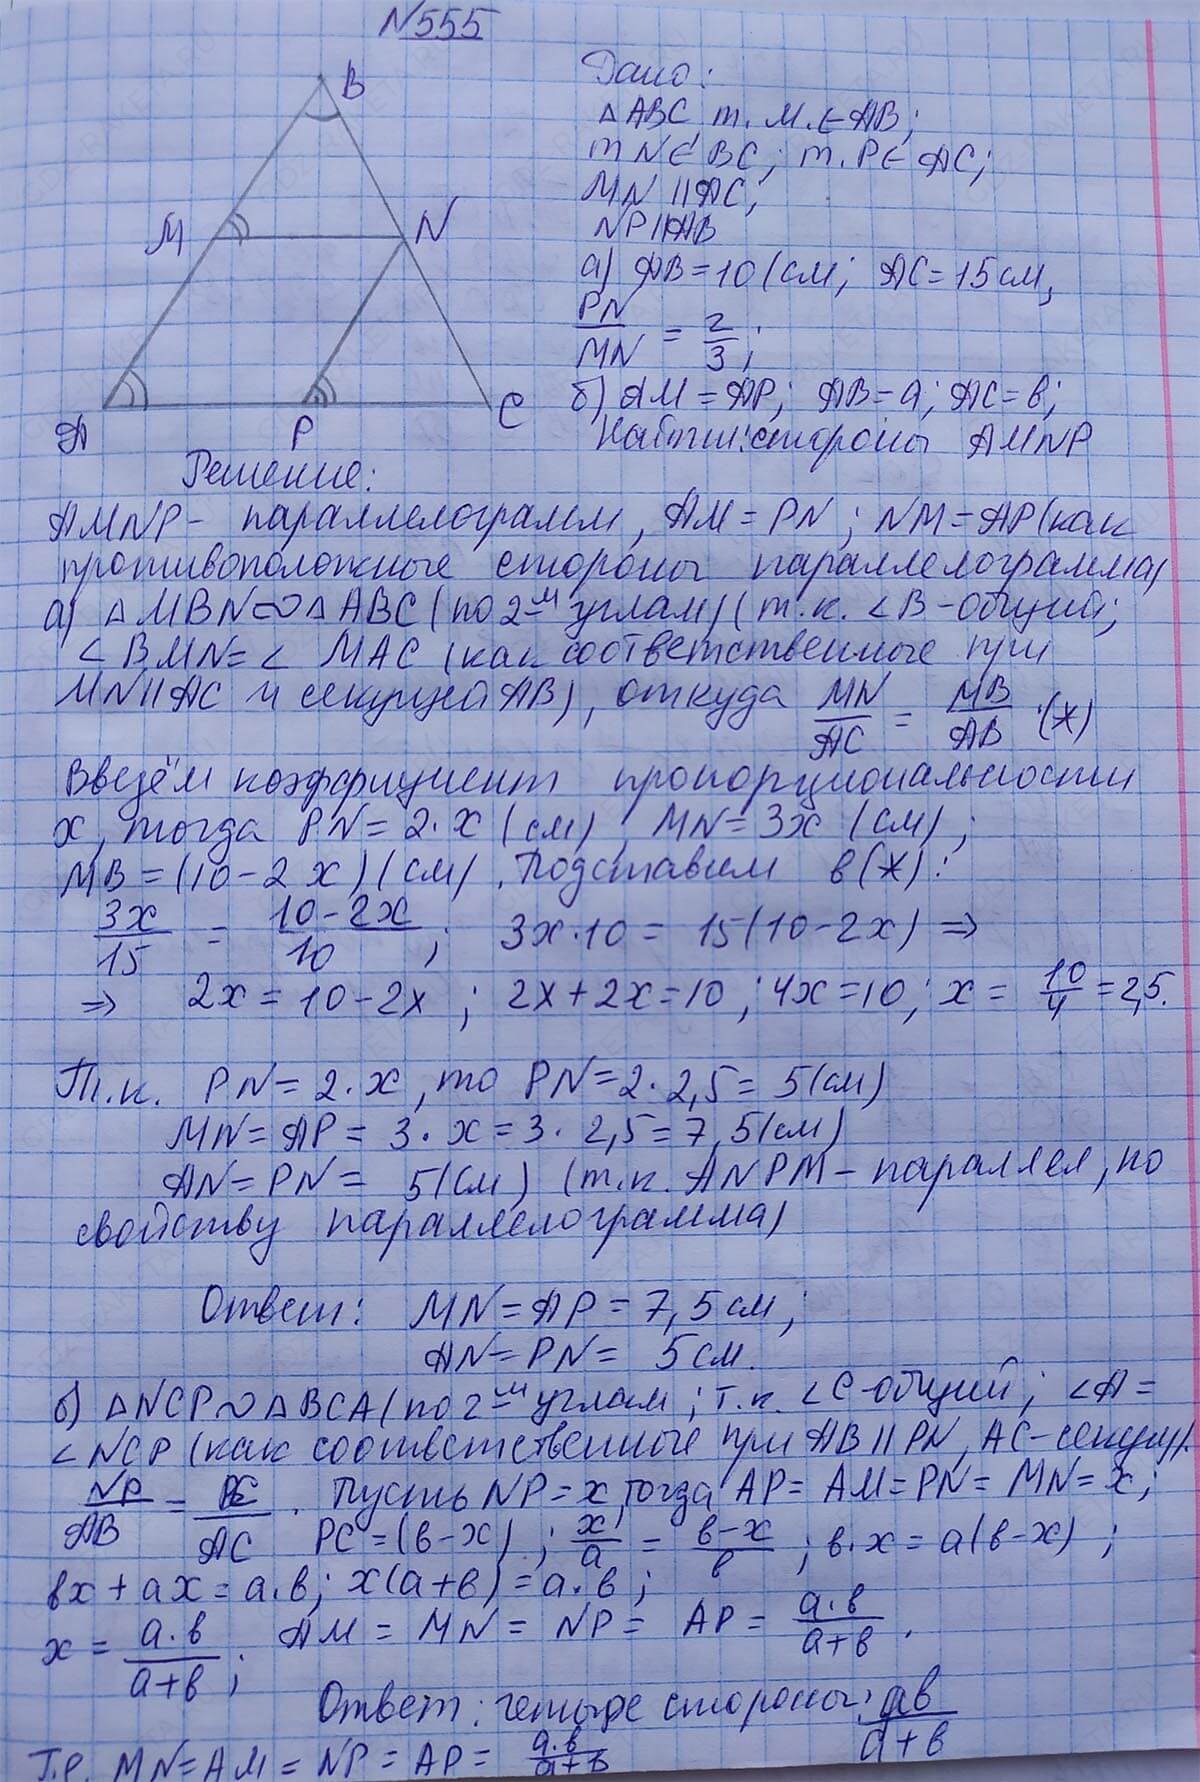 N555
B
M
N
A
P
C
Дано:
△ABC т. M. ∈ AB;
т N ∈ BC; т. P ∈ AC;
MN || AC;
NP || AB
а) AB = 10 (см; AC = 15 см,
PN/MN = 2/3;
б) AM = AP; AB = a; AC = в;
Найти: стороны AMNP
Решение:
AMNP - параллелограмм, AM = PN; NM = AP (как
противоположные стороны параллелограмма)
а) △MBN ∾ △ABC (по 2-м углам) (т.к. ∠B - общий;
∠BMN = ∠ MAC (как соответственные при
MN || AC и секущей AB), откуда MN/AC = MB/AB . (*)
Введём коэффициент пропорциональности
x, тогда PN = 2·x (см), MN = 3x (см);
MB = (10 - 2x) (см). Подставим в (*):
3x/15 = 10-2x/10; 3x·10 = 15(10-2x) ⇒
⇒ 2x = 10 - 2x; 2x + 2x = 10; 4x = 10; x = 10/4 = 2,5.
Т.к. PN = 2·x, то PN = 2·2,5 = 5 (см)
MN = AP = 3·x = 3·2,5 = 7,5 (см)
AN = PN = 5 (см) (т.к. ANPM - параллел, по
свойству параллелограмма)
Ответ: MN = AP = 7,5 см;
AN = PN = 5 см.
б) △NCP ∾ △BCA (по 2-м углам; т.к. ∠C - общий; ∠A =
∠NCP (как соответственные при AB || PN, AC - секущ).
NP/AB = PC/AC . Пусть NP = x, тогда AP = AM = PN = MN = x;
PC = (в - x); x/a = в-x/в; в·x = a(в - x);
вx + ax = a·в; x(a+в) = a·в;
x = a·в/a+в; AM = MN = NP = AP = a·в/a+в.
Ответ: четыре стороны: aв/a+в
Т.е. MN = AM = NP = AP = a·в/a+в